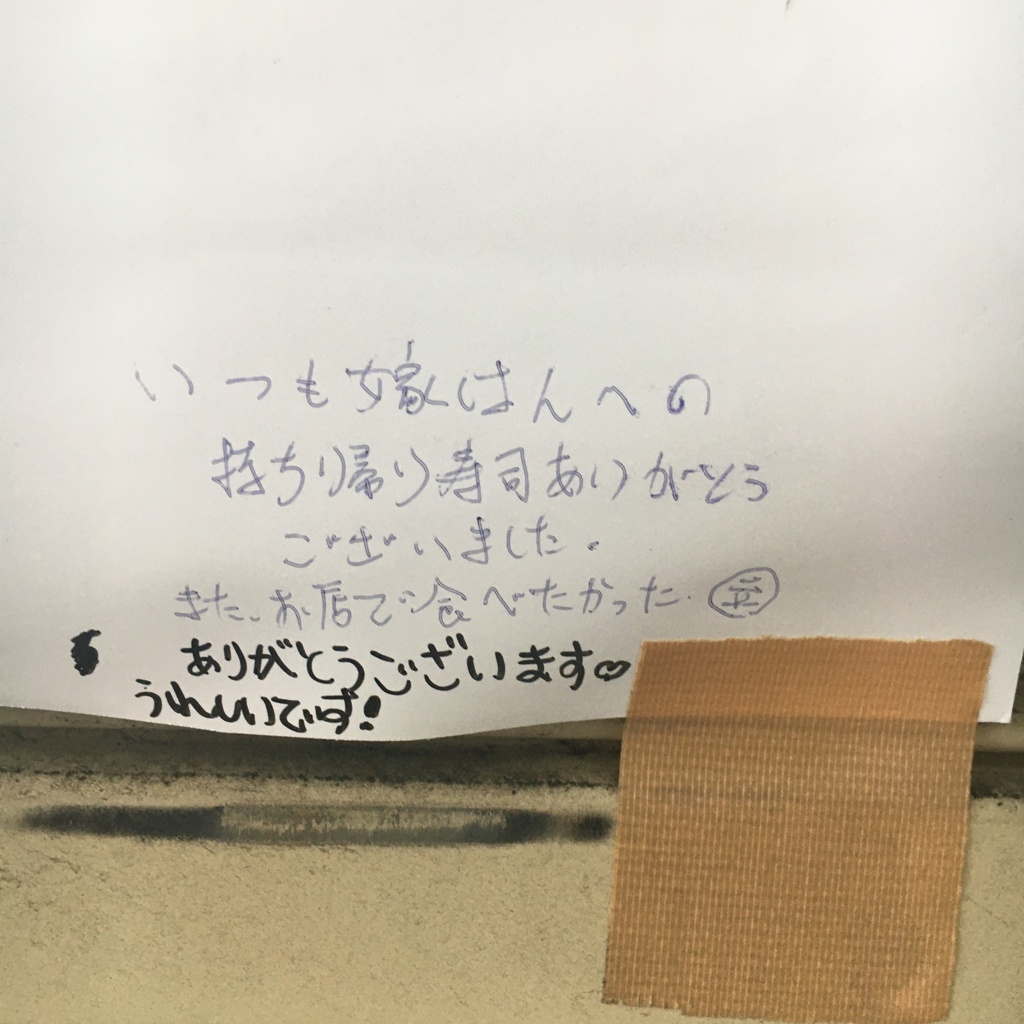 いつも嫁はんへの
持ち帰り寿司ありがとう
ございました。
また、お店で食べたかった.
ありがとうございます♡
うれしいです!